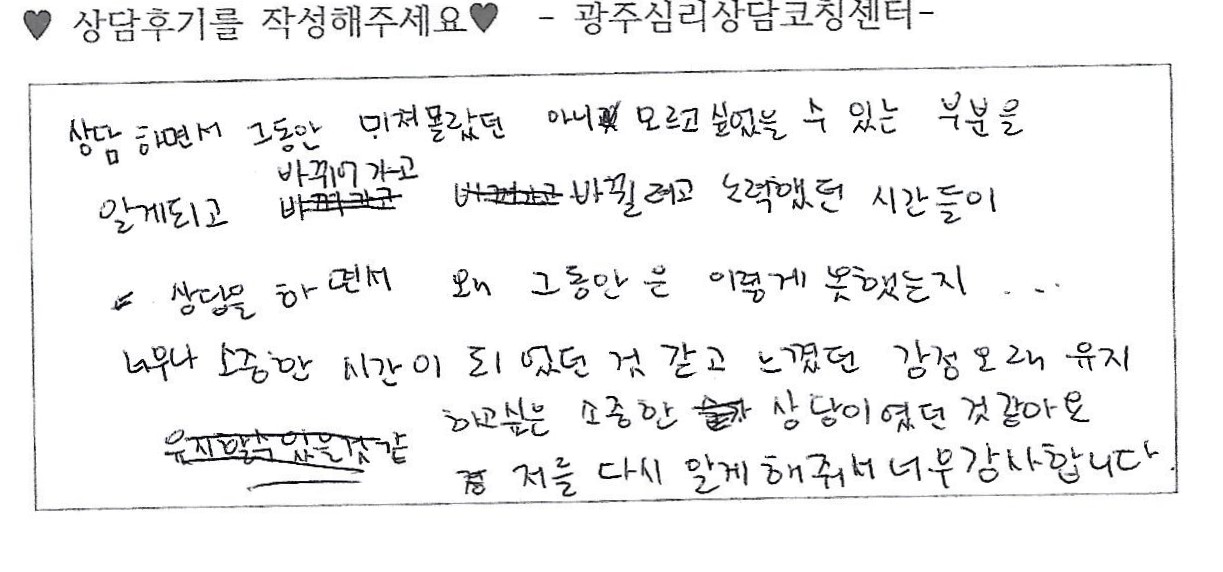 ♥ 상담후기를 작성해주세요♥ - 광주심리상담코칭센터-
상담 하면서 그동안 미쳐몰랐던 아니 모르고 싶었을 수 있는 부분을
바뀌어 가고
알게되고 바뀔려고 노력했던 시간들이
상담을 하면서 왜 그동안은 이렇게 못했는지 ...
너무나 소중한 시간이 되었던 것 같고 느꼈던 감정오래 유지
하고싶은 소중한 상담이였던 것같아요
유지할수 있을것같
저를 다시 알게해줘서 너무감사합니다.